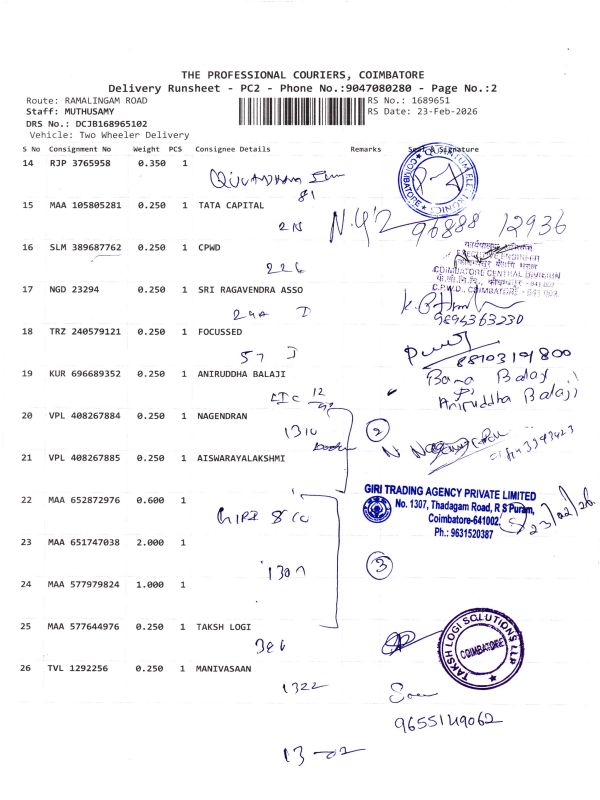 THE PROFESSIONAL COURIERS, COIMBATORE
Delivery Runsheet - PC2 - Phone No.:9047080280 - Page No.:2
Route: RAMALINGAM ROAD
RS No.: 1689651
Staff: MUTHUSAMY
RS Date: 23-Feb-2026
DRS No.: DCJB168965102
Vehicle: Two Wheeler Delivery
S No Consignment No Weight PCS Consignee Details Remarks Seal & Signature
14 RJP 3765958 0.350 1
81
COIMBATORE
15 MAA 105805281 0.250 1 TATA CAPITAL
96888 12936
16 SLM 389687762 0.250 1 CPWD
226
EXECUTIVE ENGINEER
COIMBATORE CENTRAL DIVISION
C.P.W.D., COIMBATORE - 641 002
17 NGD 23294 0.250 1 SRI RAGAVENDRA ASSO
9894363230
18 TRZ 240579121 0.250 1 FOCUSSED
57
8870319800
19 KUR 696689352 0.250 1 ANIRUDDHA BALAJI
Balaji
Aniruddha Balaji
LIC 12
20 VPL 408267884 0.250 1 NAGENDRAN
1310
2
21 VPL 408267885 0.250 1 AISWARAYALAKSHMI
22 MAA 652872976 0.600 1
GIRI
GIRI TRADING AGENCY PRIVATE LIMITED
No. 1307, Thadagam Road, R S Puram,
Coimbatore-641002.
Ph.: 9631520387
23/02/26
23 MAA 651747038 2.000 1
1307
3
24 MAA 577979824 1.000 1
25 MAA 577644976 0.250 1 TAKSH LOGI
386
TAKSH LOGI SOLUTIONS LLP
COIMBATORE
26 TVL 1292256 0.250 1 MANIVASAAN
1322
9655149062
13-02